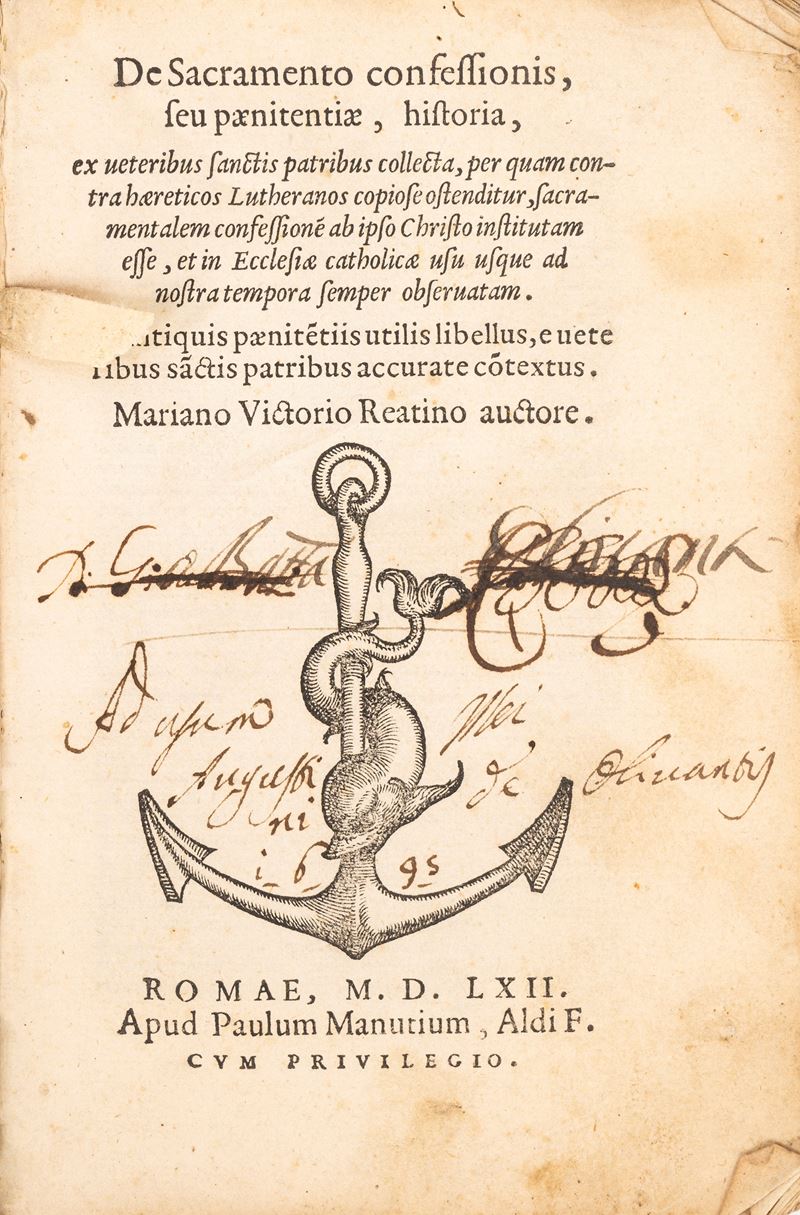 De Sacramento confeſſionis,
ſeu pænitentiæ, hiſtoria,
ex ueteribus ſanctis patribus collecta, per quam con-
tra hæreticos Lutheranos copioſe oſtenditur, ſacra-
mentalem confeſſionē ab ipſo Chriſto inſtitutam
eſſe, et in Eccleſiæ catholicæ uſu uſque ad
noſtra tempora ſemper obſeruatam.
tiquis pænitētiis utilis libellus, e uete
ibus sāctis patribus accurate cōtextus.
Mariano Victorio Reatino auctore.
D. Gio Batta
Ad usum Mei
Augusti
ni de Oliuantis
i 6 9 5
ROMAE, M. D. LXII.
Apud Paulum Manutium, Aldi F.
CVM PRIVILEGIO.